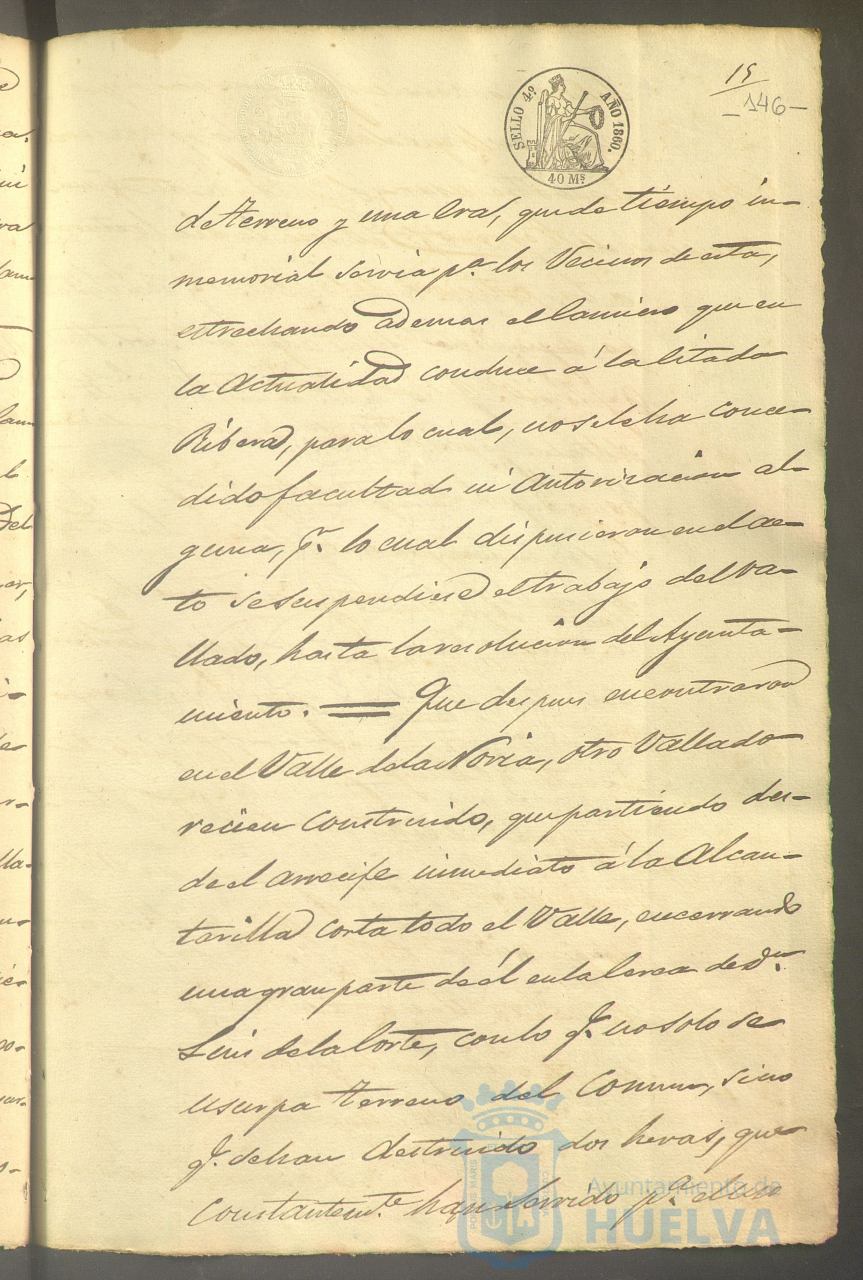 SELLO 4º AÑO 1860.
40 Ms
15
-146-
de terreno y una Era, que de tiempo in-
memorial servia pa. los Vecinos de esta,
estrechando ademas el Camino que en
la Actualidad conduce á la citada
Ribera, para lo cual, no se le ha conce-
dido facultad ni Autorizacion al-
guna, pr. lo cual dispusieron en el ac-
to se suspendiese el trabajo del va-
llado, hasta la resolucion del Ayunta-
miento. = Que despues encontraron
en el Valle de la Noria, otro Vallado
recien Construido, que partiendo des-
de el arrecife inmediato á la Alcan-
tarilla corta todo el Valle, encerrando
una gran parte de él en la cerca de Dn.
Luis de la Corte, con lo q. no solo se
usurpa terreno del Comun, sino
q. se han destruido dos heras, que
Constantemte. han servido pa. el uso
Ayuntamiento de
HUELVA